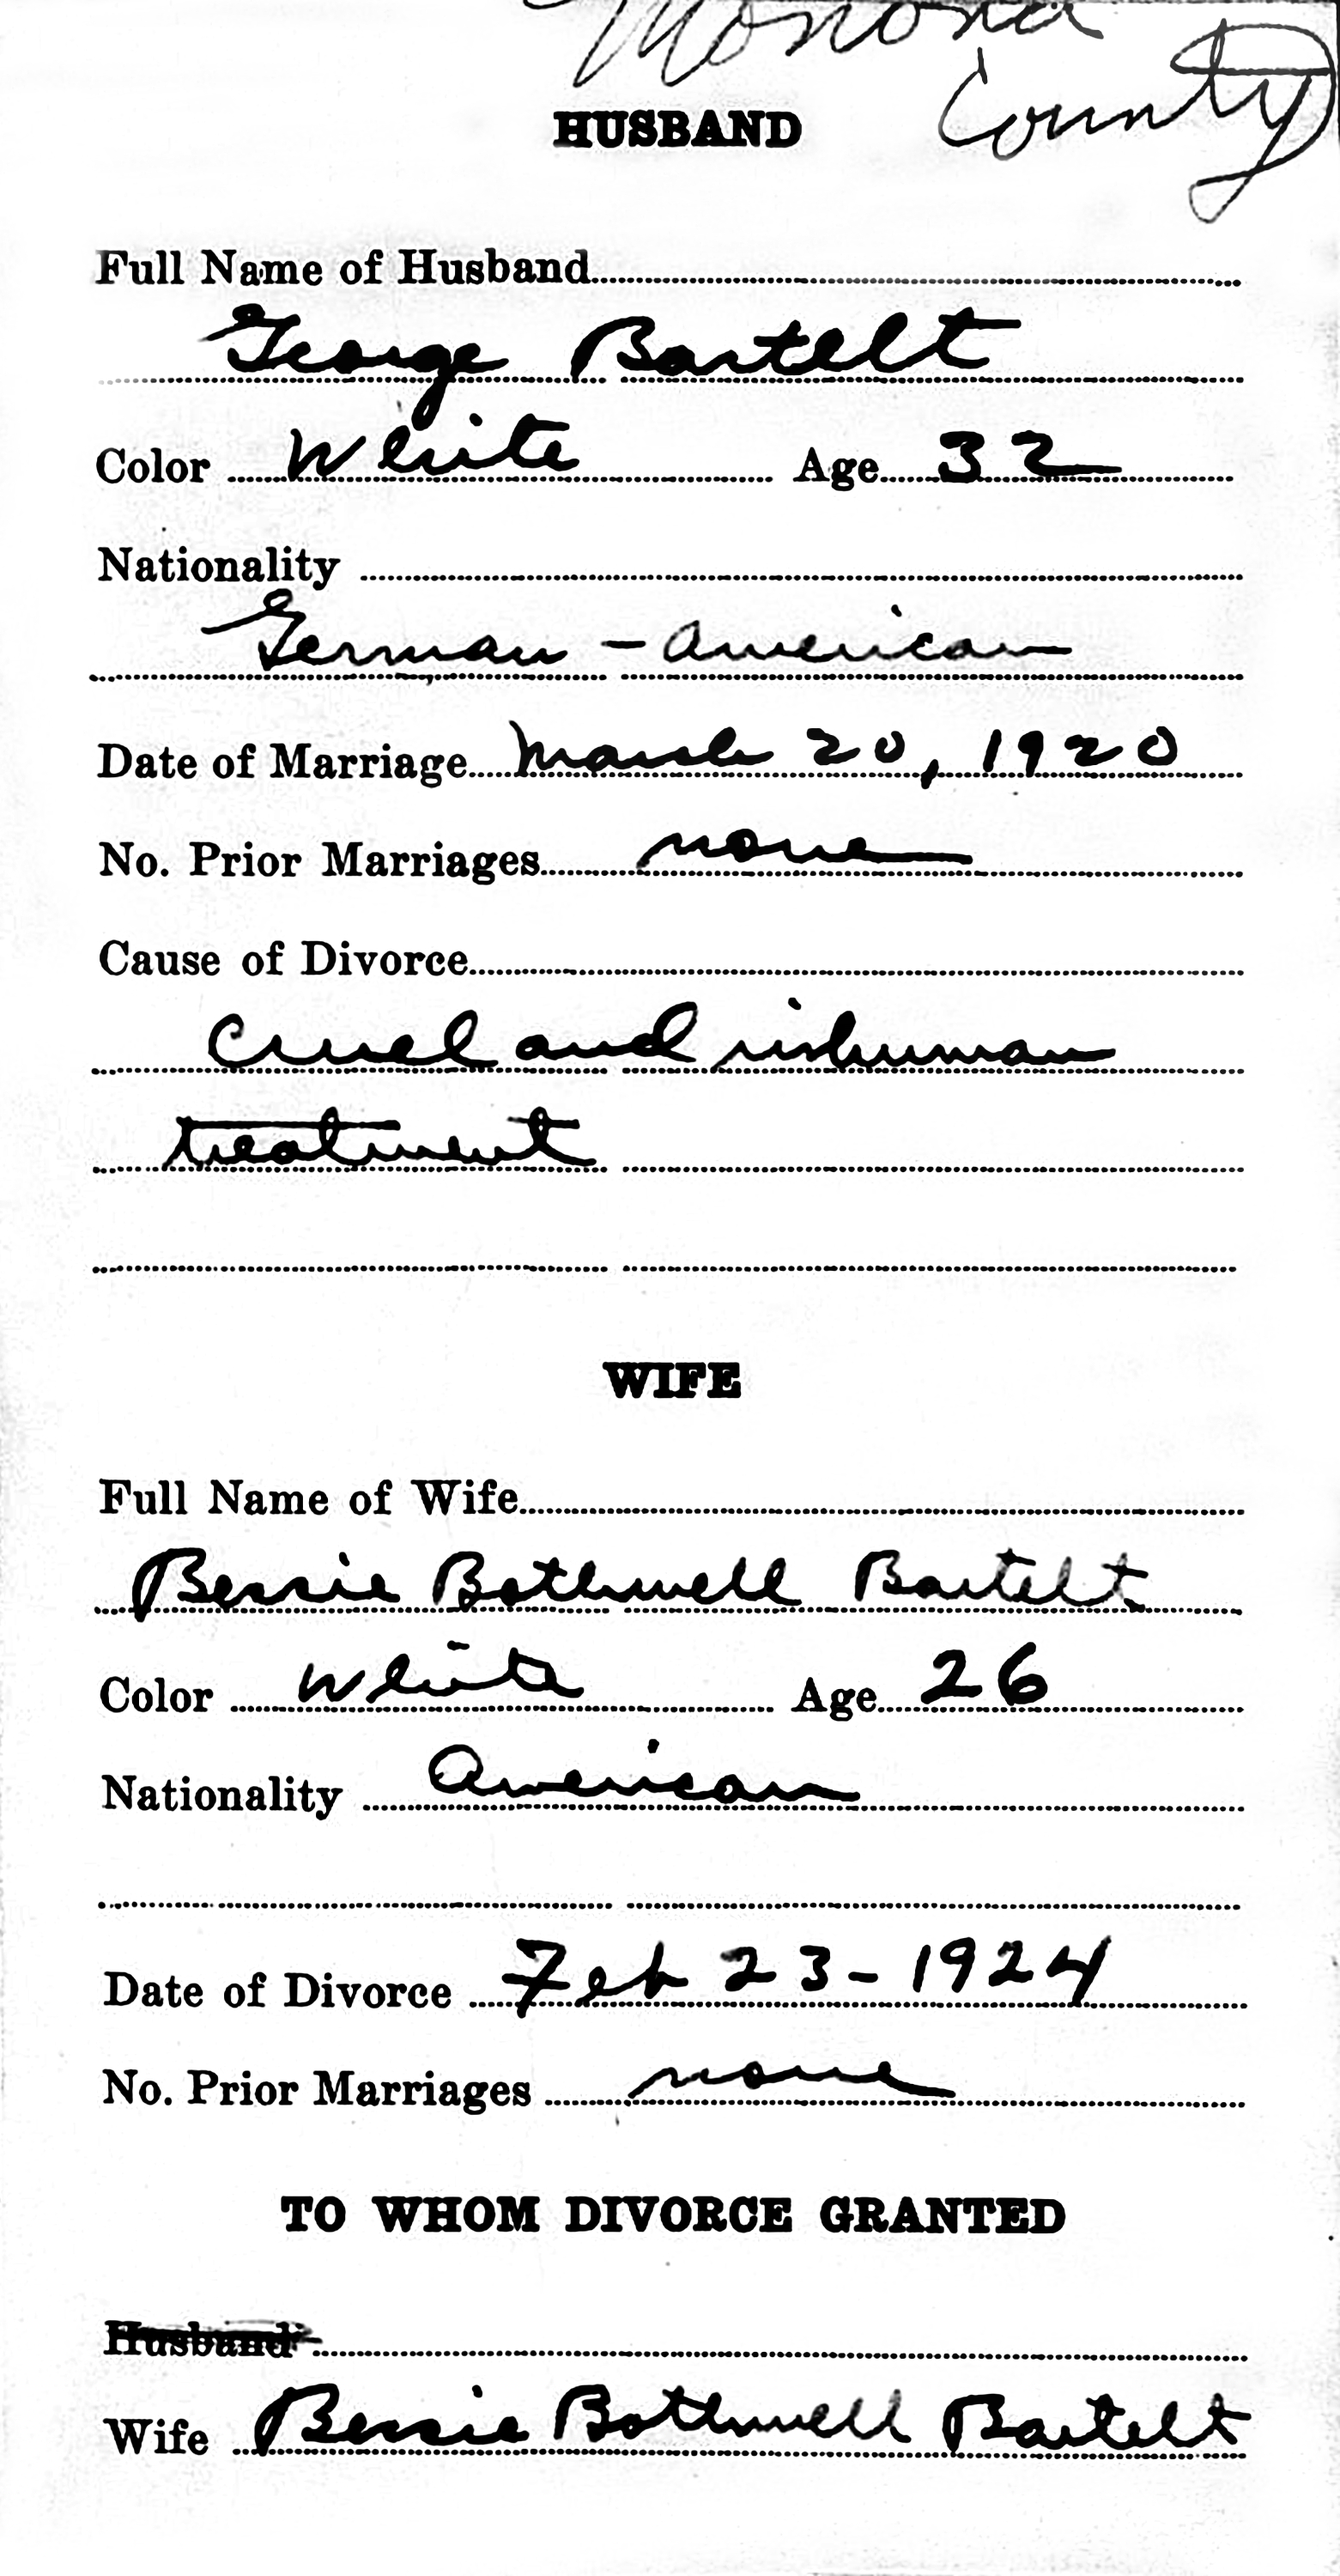 Monona
County
HUSBAND
Full Name of Husband
George Bartelt
Color White Age 32
Nationality
German - American
Date of Marriage March 20, 1920
No. Prior Marriages none
Cause of Divorce
Cruel and inhuman
treatment
WIFE
Full Name of Wife
Bessie Bothwell Bartelt
Color White Age 26
Nationality American
Date of Divorce Feb 23 - 1924
No. Prior Marriages none
TO WHOM DIVORCE GRANTED
Husband
Wife Bessie Bothwell Bartelt